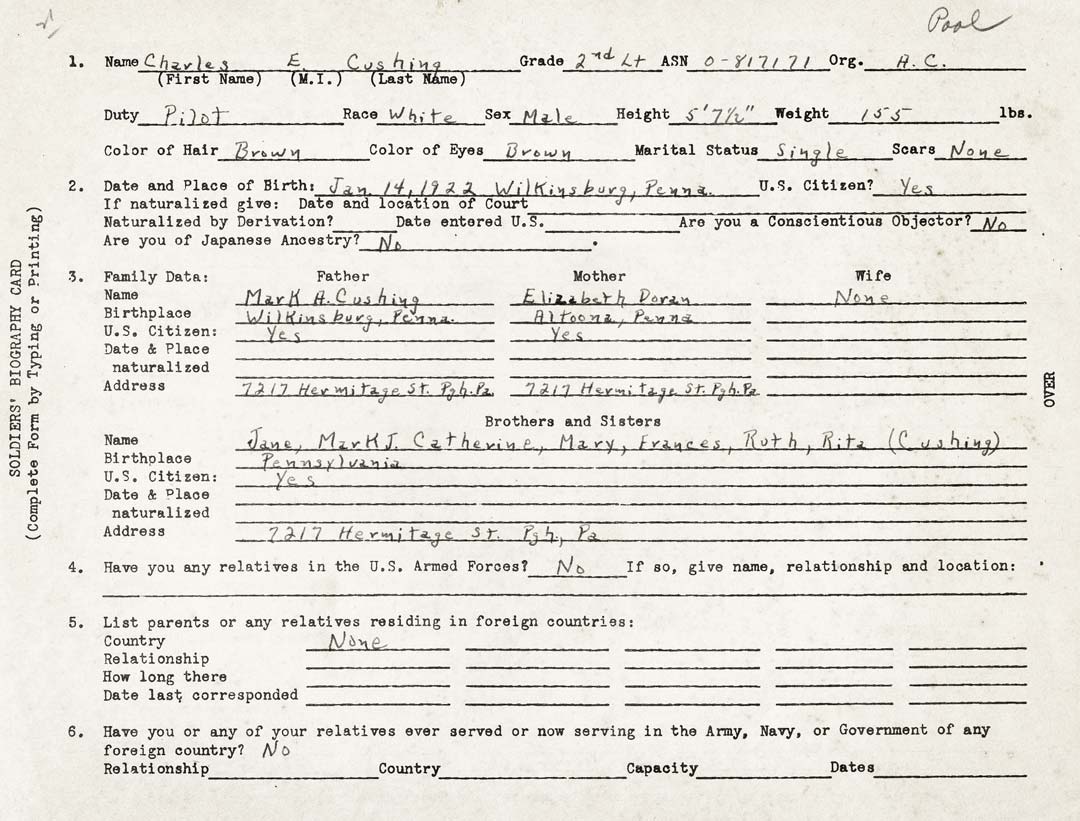 Pool
1. Name Charles E. Cushing Grade 2nd Lt ASN O-817171 Org. A.C.
(First Name) (M.I.) (Last Name)
Duty Pilot Race White Sex Male Height 5'7½" Weight 155 lbs.
Color of Hair Brown Color of Eyes Brown Marital Status Single Scars None
2. Date and Place of Birth: Jan. 14, 1922 Wilkinsburg, Penna. U.S. Citizen? Yes
If naturalized give: Date and location of Court
Naturalized by Derivation? Date entered U.S. Are you a Conscientious Objector? No
Are you of Japanese Ancestry? No .
3. Family Data: Father Mother Wife
Name Mark A. Cushing Elizabeth Doran None
Birthplace Wilkinsburg, Penna. Altoona, Penna
U.S. Citizen: Yes Yes
Date & Place
naturalized
Address 7217 Hermitage St. Pgh. Pa. 7217 Hermitage St. Pgh. Pa
Brothers and Sisters
Name Jane, Mark J. Catherine, Mary, Frances, Ruth, Rita (Cushing)
Birthplace Pennsylvania
U.S. Citizen: Yes
Date & Place
naturalized
Address 7217 Hermitage St. Pgh, Pa
4. Have you any relatives in the U.S. Armed Forces? No If so, give name, relationship and location:
5. List parents or any relatives residing in foreign countries:
Country None
Relationship
How long there
Date last corresponded
6. Have you or any of your relatives ever served or now serving in the Army, Navy, or Government of any
foreign country? No
Relationship Country Capacity Dates
SOLDIERS' BIOGRAPHY CARD
(Complete Form by Typing or Printing)
OVER